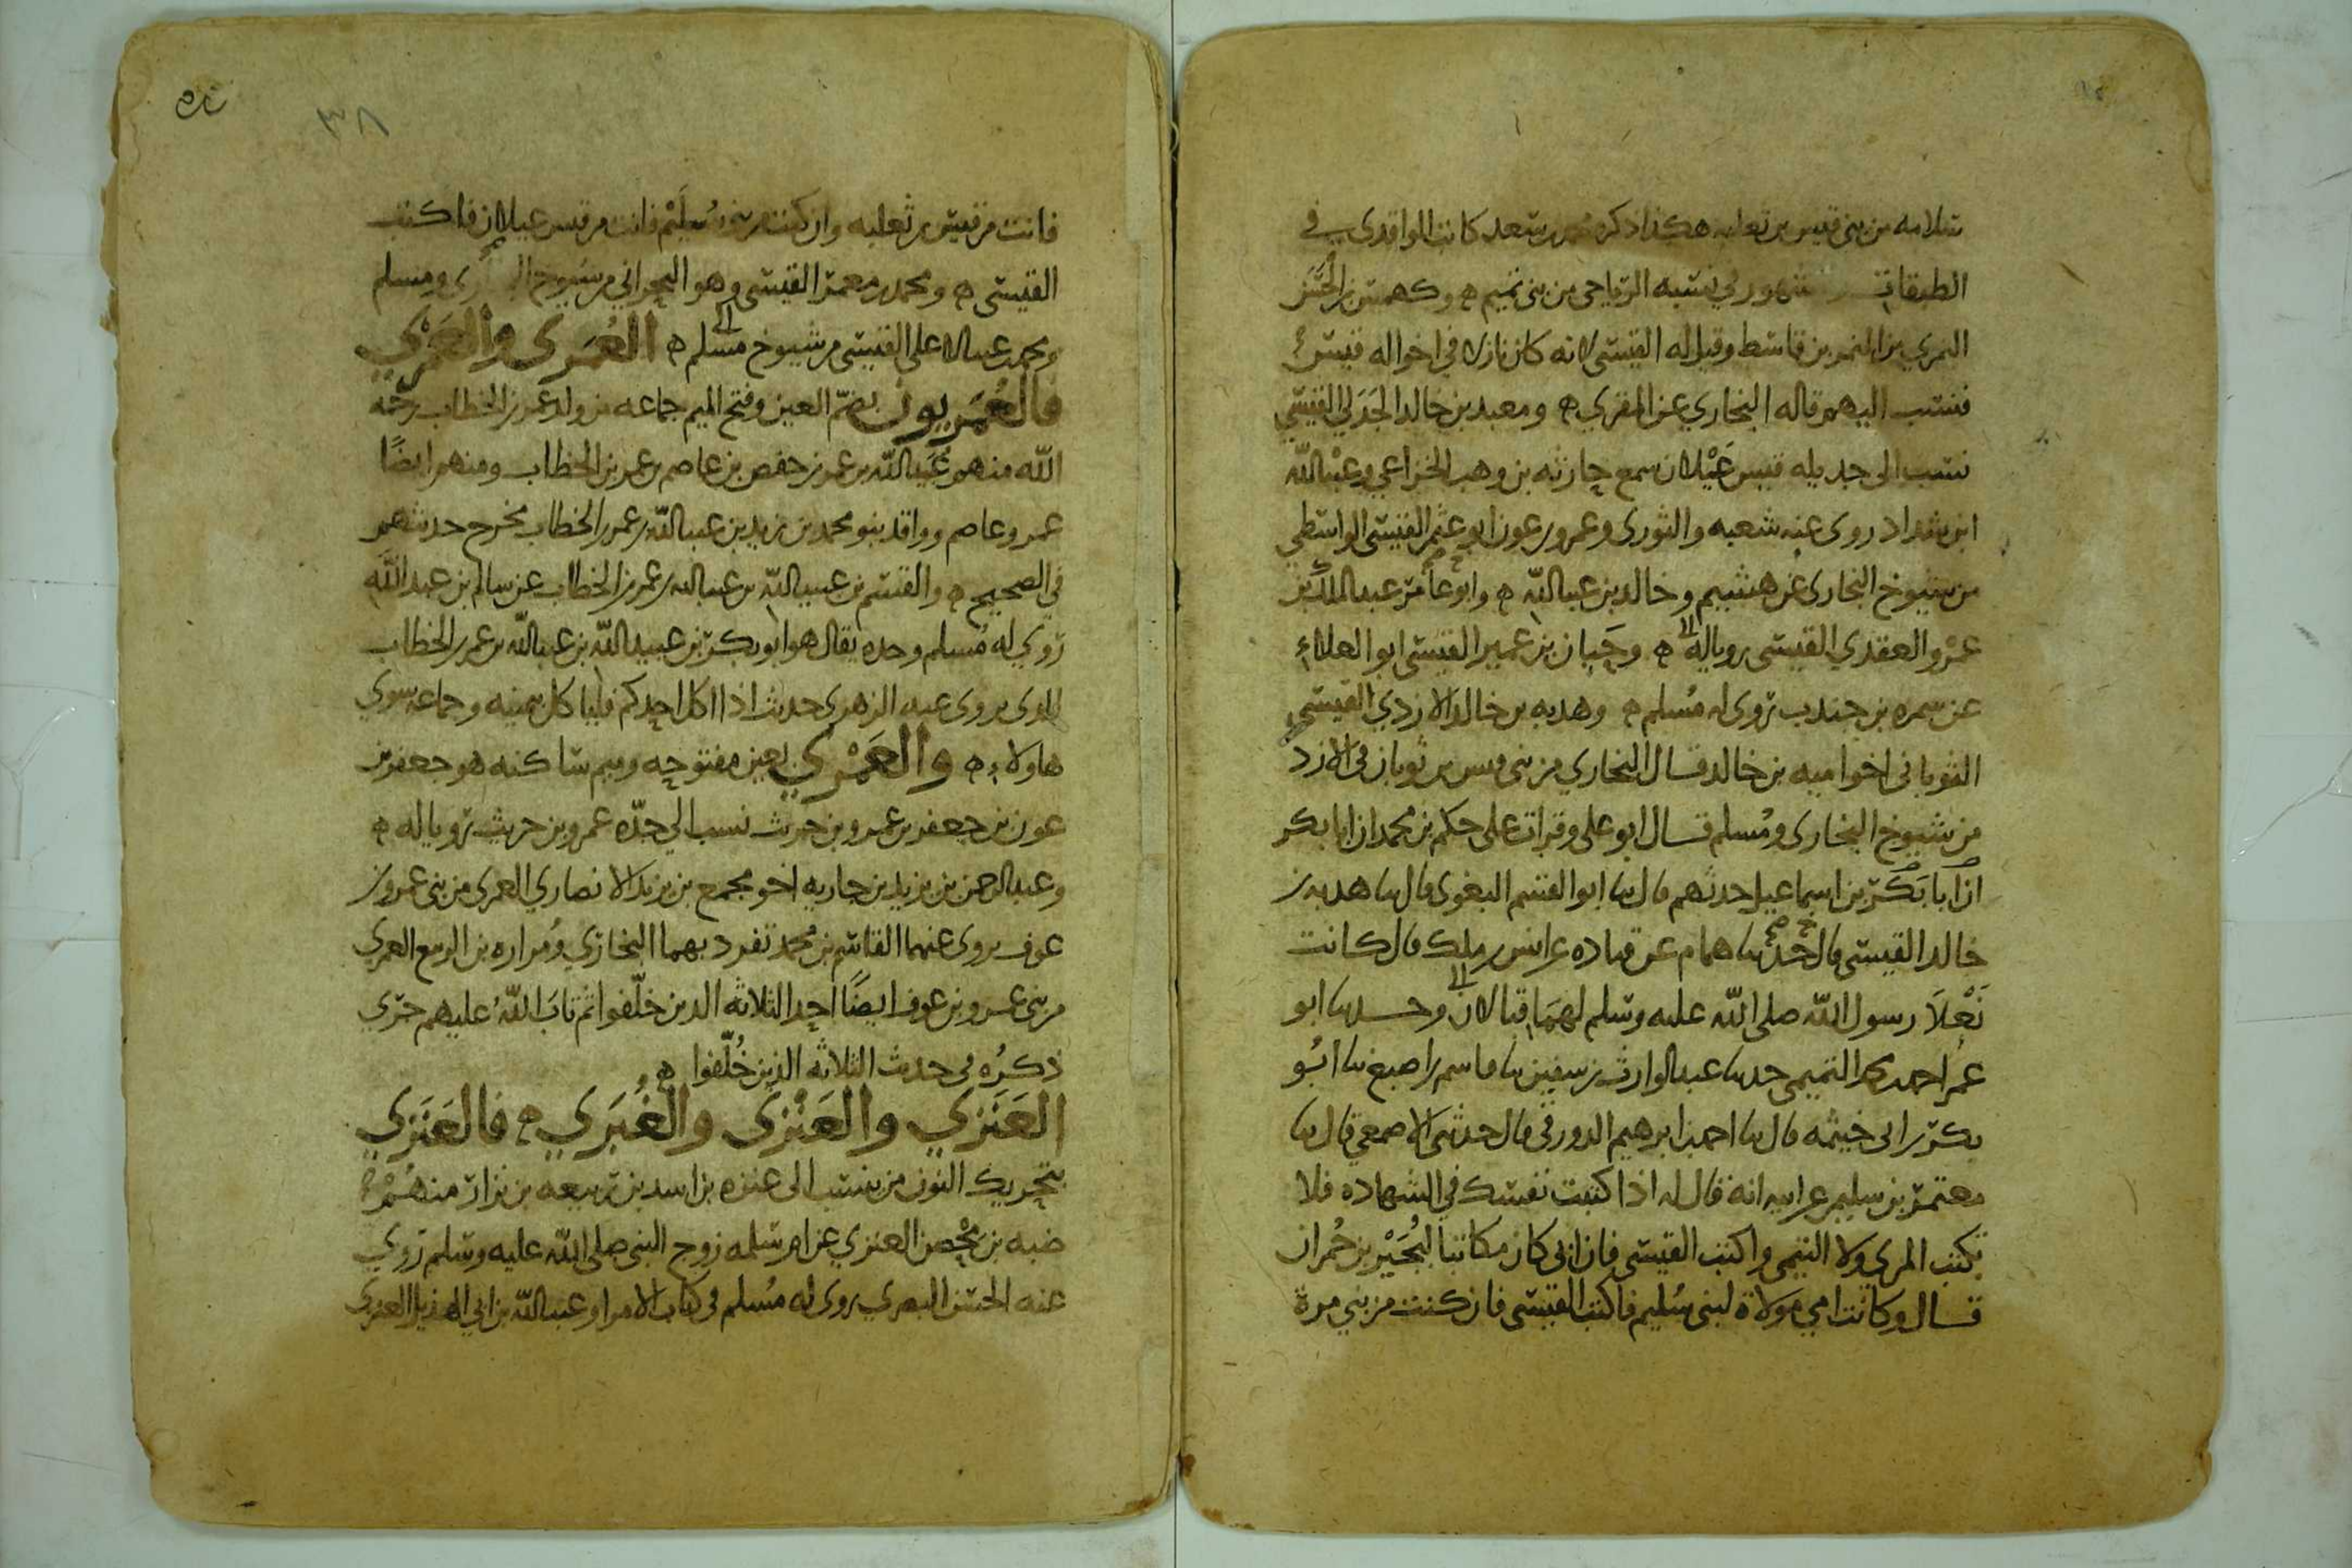 سلامه من بني قيس بن ثعلبه هكذا ذكره محمد بن سعد كاتب الواقدي في
الطبقات مشهور في نسبه الرياحي من بني تميم ه وكهمس بن الحسن
النمري من النمر بن قاسط وقيل له القيسي لانه كان نازلا في اخواله قيس
فنسب اليهم قاله البخاري عن المقري ه ومعبد بن خالد الجدلي القيسي
نسب الى جديله قيس عيلان سمع حارثه بن وهب الخزاعي وعبد الله
ابن شداد روى عنه شعبه والثوري وعمرو بن عون ابو عثمن القيسي الواسطي
من شيوخ البخاري عن هشيم وخالد بن عبد الله ه وابو عامر عبد الملك بن
عمرو العقدي القيسي رويا له ه وحيان بن عمير القيسي ابو العلاء
عن سمره بن جندب روى له مسلم ه وهدبه بن خالد الازدي القيسي
الثوباني اخو اميه بن خالد قال البخاري من بني قيس بن ثوبان في الازد
من شيوخ البخاري ومسلم قال ابو علي وقرات على حكم بن محمد ان ابا بكر
ان ابا بكر بن اسماعيل حدثهم قال نا ابو القسم البغوي قال نا هدبه بن
خالد القيسي قال حدثنا همام عن قتاده عن انس بن ملك قال كانت
نعلا رسول الله صلى الله عليه وسلم لهما قبالان وحدثنا ابو
عمر احمد بن محمد التميمي حدثنا عبد الوارث بن سفين نا قاسم بن اصبغ نا ابو
بكر بن ابي خيثمه قال نا احمد بن ابرهيم الدورقي قال حدثني الاصمعي قال نا
معتمر بن سليمن عن ابيه انه قال له اذا كتبت نفسك في الشهاده فلا
تكتب المري ولا التيمي واكتب القيسي فان ابي كان مكاتبا لبجير بن حمران
قال وكانت امي مولاة لبني سليم فاكتب القيسي فان كنت من بني مرة
٣٨
فانت من قيس بن ثعلبه وان كنت من بني سليم فانت من قيس عيلان فاكتب
القيسي ه ومحمد بن معمر القيسي وهو البحراني من شيوخ البخاري ومسلم
ومحمد بن عبد الاعلى القيسي من شيوخ مسلم ه العُمَرى والعَمْري
فالعُمَريون بضم العين وفتح الميم جماعه من ولد عمر بن الخطاب رحمه
الله منهم عبيد الله بن عمر بن حفص بن عاصم بن عمر بن الخطاب ومنهم ايضًا
عمر وعاصم وواقد بنو محمد بن زيد بن عبد الله بن عمر بن الخطاب مخرج حديثهم
في الصحيح ه والقسم بن عبيد الله بن عبد الله بن عمر بن الخطاب عن سالم بن عبد الله
روى له مسلم وحده يقال هو ابو بكر بن عبيد الله بن عبد الله بن عمر بن الخطاب
الذي يروى عنه الزهري حديث اذا اكل احدكم فلياكل بيمينه وجماعه سوى
هاولاء ه والعَمْري بعين مفتوحه وميم ساكنه هو جعفر بن
عون بن جعفر بن عمرو بن حريث نسب الي جدّه عمرو بن حريث رويا له ه
وعبد الرحمن بن يزيد بن جاريه اخو مجمع بن يزيد الانصاري العمري من بني عمرو بن
عوف يروى عنهما القاسم بن محمد تفرد بهما البخاري ومراره بن الربيع العمري
من بني عمرو بن عوف ايضًا احد الثلاثه الذين خلّفوا ثم تابَ اللهُ عليهم جرى
ذكرُه في حديث الثلاثه الذين خُلّفوا ه
العَنَزي والعَنْزى والغُبَري ه فالعَنَزي
بتحريك النون من ينسب الى عنزه بن اسد بن ربيعه بن نزار منهُم
ضبه بن مِحْصن العنزي عن ام سلمه زوج النبي صلى الله عليه وسلم روى
عنه الحسن البصري روى له مُسلم في كتاب الامرا وعبد الله بن ابي الهذيل العنزي